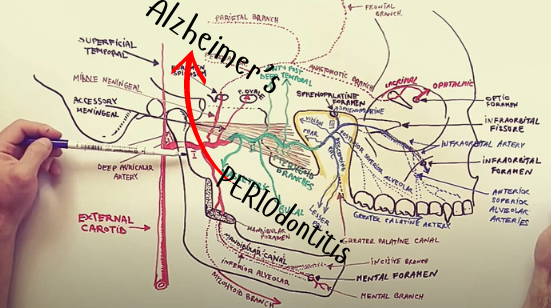 Alzheimer's
PERIodontitis
PARIETAL BRANCH
FRONTAL
BRANCH
SUPERFICIAL
TEMPORAL
MIDDLE MENINGEAL
ACCESSORY
MENINGEAL
F. OVALE
DEEP TEMPORAL
ANASTOMOTIC BRANCH
LACRIMAL
OPHTHALMIC
SPHENOPALATINE
FORAMEN
SPHENOPALATINE
OPTIC
FORAMEN
INFRAORBITAL
FISSURE
INFRAORBITAL ARTERY
INFRAORBITAL
FORAMEN
ANTERIOR
SUPERIOR
ALVEOLAR
ARTERIES
DEEP AURICULAR
ARTERY
PTERYGOID
BRANCHES
EXTERNAL
CAROTID
GREATER PALATINE ARTERY
GREATER PALATINE CANAL
MANDIBULAR
FORAMEN
MANDIBULAR CANAL
INFERIOR ALVEOLAR
MYLOHYOID BRANCH
INCISIVE BRANCH
MENTAL FORAMEN
MENTAL BRANCH